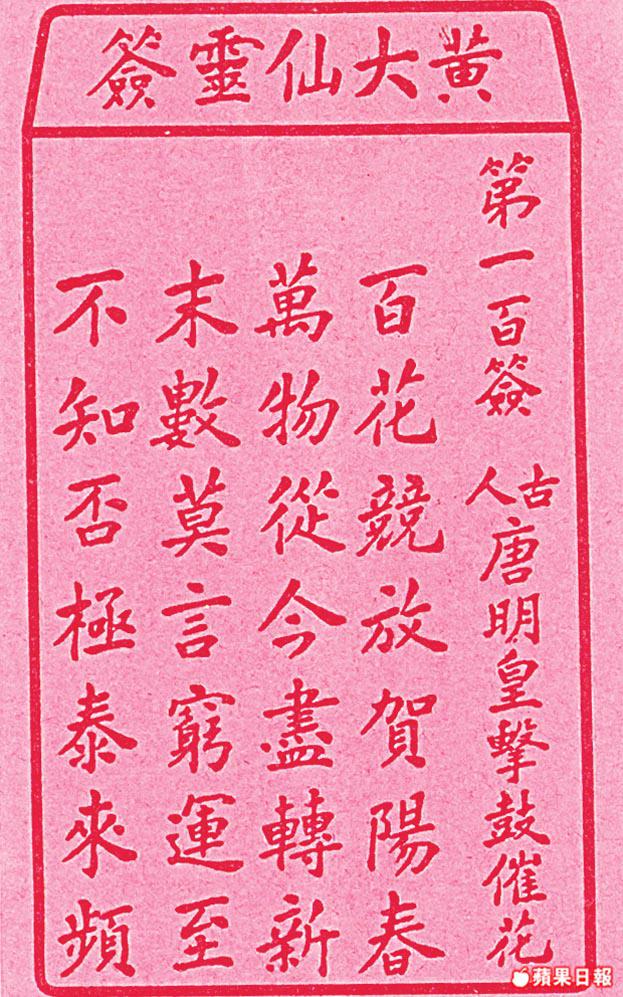 黄大仙靈簽
第一百簽 古人 唐明皇擊鼓催花
百花競放賀陽春
萬物從今盡轉新
末數莫言窮運至
不知否極泰來頻
蘋果日報